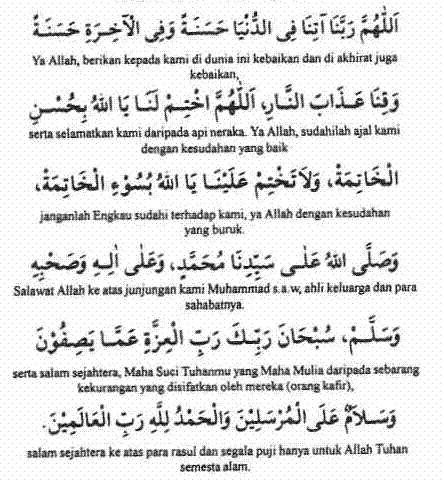 اَللّٰهُمَّ رَبَّنَا آتِنَا فِى الدُّنْيَا حَسَنَةً وَفِى الْآخِرَةِ حَسَنَةً
Ya Allah, berikan kepada kami di dunia ini kebaikan dan di akhirat juga
kebaikan,
وَقِنَا عَذَابَ النَّارِ، اَللّٰهُمَّ اخْتِمْ لَنَا يَا اللهُ بِحُسْنِ
serta selamatkan kami daripada api neraka. Ya Allah, sudahilah ajal kami
dengan kesudahan yang baik
الْخَاتِمَةْ، وَلَا تَخْتِمْ عَلَيْنَا يَا اللهُ بُسُوْءِ الْخَاتِمَةْ،
janganlah Engkau sudahi terhadap kami, ya Allah dengan kesudahan
yang buruk.
وَصَلَّى اللهُ عَلٰى سَيِّدِنَا مُحَمَّدٍ، وَعَلٰى اٰلِهِ وَصَحْبِهِ
Salawat Allah ke atas junjungan kami Muhammad s.a.w, ahli keluarga dan para
sahabatnya.
وَسَلَّمْ، سُبْحَانَ رَبِّكَ رَبِّ الْعِزَّةِ عَمَّا يَصِفُوْنَ
serta salam sejahtera, Maha Suci Tuhanmu yang Maha Mulia daripada sebarang
kekurangan yang disifatkan oleh mereka (orang kafir),
وَسَلَامٌ عَلَى الْمُرْسَلِيْنَ وَالْحَمْدُ لِلَّهِ رَبِّ الْعَالَمِيْنَ.
salam sejahtera ke atas para rasul dan segala puji hanya untuk Allah Tuhan
semesta alam.